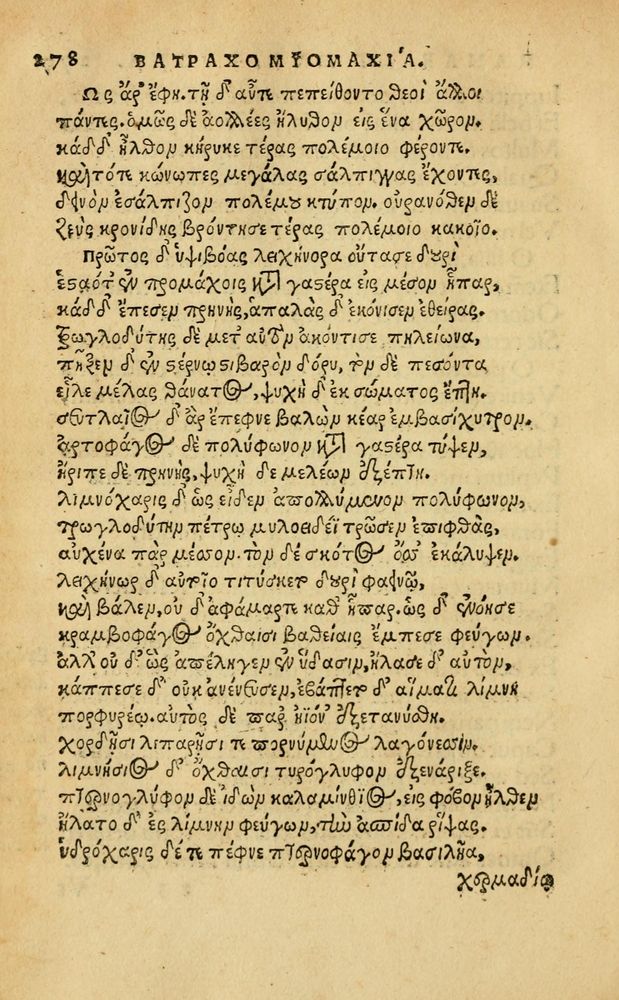 278 ΒΑΤΡΑΧΟΜΥΟΜΑΧΙΑ.
Ως ἄρ ἔφη. τῇ δ᾽ αὖτε πεπείθοντο θεοὶ ἄλλοι
πάντες. ὁμῶς δὲ ἀολλέες ἤλυθον εἰς ἕνα χῶρον.
κάδ δ᾽ ἦλθον κήρυκε τέρας πολέμοιο φέροντε.
καὶ τότε κώνωπες μεγάλας σάλπιγγας ἔχοντες,
δεινὸν ἐσάλπιζον πολέμου κτύπον. οὐρανόθεν δὲ
ζεὺς κρονίδης βρόντησε τέρας πολέμοιο κακοῖο.
Πρῶτος δ᾽ ὑψιβόας λειχήνορα οὔτασε δουρὶ
ἑσταότ᾽ ἐν προμάχοις κατὰ γαστέρα εἰς μέσον ἧπαρ,
κάδ δ᾽ ἔπεσεν πρηνὴς, ἁπαλὰς δ᾽ ἐκόνισεν ἐθείρας.
Τρωγλοδύτης δὲ μετ αὐτὸν ἀκόντισε πηλείωνα,
πῆξεν δ᾽ ἐν στέρνῳ στιβαρὸν δόρυ, τὸν δὲ πεσόντα
εἷλε μέλας θάνατος, ψυχὴ δ᾽ ἐκ σώματος ἔπτη.
σευτλαῖος δ᾽ ἄρ ἔπεφνε βαλὼν κέαρ ἐμβασίχυτρον.
ἀρτοφάγος δὲ πολύφωνον κατὰ γαστέρα τύψεν,
ἤριπε δὲ πρηνὴς, ψυχὴ δὲ μελέων ἐξέπτη.
λιμνόχαρις δ᾽ ὡς εἶδεν ἀπολλύμενον πολύφωνον,
τρωγλοδύτην πέτρῳ μυλοειδέϊ τρῶσεν ἐπιφθὰς,
αὐχένα παρ μέσσον. τὸν δὲ σκότος ὄσσ᾽ ἐκάλυψεν.
λειχήνωρ δ᾽ αὐτοῖο τιτύσκετ δουρὶ φαεινῷ,
καὶ βάλεν, οὐ δ᾽ ἀφάμαρτε καθ ἧπαρ. ὡς δ᾽ ἐνόησε
κραμβοφάγος ὄχθαισι βαθείαις ἔμπεσε φεύγων.
ἀλλ οὐ δ᾽ ὣς ἀπέληγεν ἐν ὕδασιν, ἤλασε δ᾽ αὐτὸν,
κάππεσε δ᾽ οὐκ ἀνένευσεν, ἐβάπτετ δ᾽ αἵματι λίμνη
πορφυρέῳ. αὐτὸς δὲ παρ ἠϊόν᾽ ἐξετανύσθη.
χορδῇσι λιπαρῇσι τε πορνύμενος λαγόνεσσιν.
λιμνήσιος δ᾽ ὄχθαισι τυρόγλυφον ἐξενάριξε.
πτερνογλύφον δὲ ἰδὼν καλαμίνθιος, εἰς φόβον ἦλθεν
ἥλατο δ᾽ ἐς λίμνην φεύγων, τὴν ἀσπίδα ῥίψας.
ὑδρόχαρις δέ τε πέφνε πτερνοφάγον βασιλῆα,
χερμαδίῳ